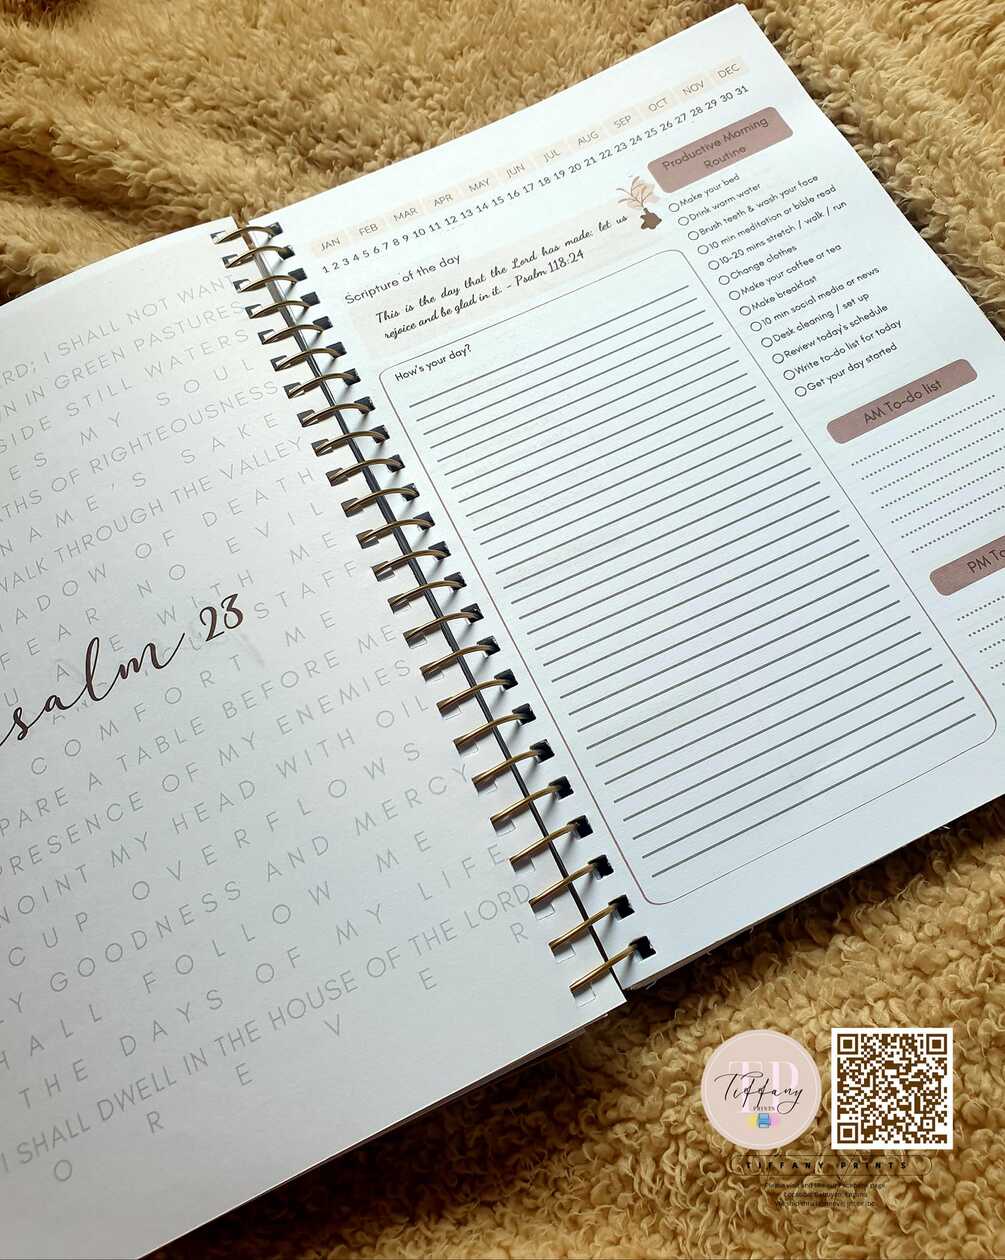 ERD; I SHALL NOT WANT
N IN GREEN PASTURES
SIDE STILL WATERS
ES MY SOUL
THS OF RIGHTEOUSNESS
NAME'S SAKE
WALK THROUGH THE VALLEY
ADOW OF DEATH
FEAR NO EVIL
U ARE WITH ME
STAFF
COMFORT ME
salm 23
PARE A TABLE BEFORE ME
PRESENCE OF MY ENEMIES
NOINT MY HEAD WITH OIL
CUP OVERFLOWS
Y GOODNESS AND MERCY
HALL FOLLOW ME
THE DAYS OF MY LIFE
I SHALL DWELL IN THE HOUSE OF THE LORD
F O R E V E R
JAN FEB MAR APR MAY JUN JUL AUG SEP OCT NOV DEC
1 2 3 4 5 6 7 8 9 10 11 12 13 14 15 16 17 18 19 20 21 22 23 24 25 26 27 28 29 30 31
Scripture of the day
This is the day that the Lord has made; let us
rejoice and be glad in it. - Psalm 118:24
How's your day?
Productive Morning
Routine
Make your bed
Drink warm water
Brush teeth & wash your face
10 min meditation or bible read
10-20 mins stretch / walk / run
Change clothes
Make your coffee or tea
Make breakfast
10 min social media or news
Desk cleaning / set up
Review today's schedule
Write to-do list for today
Get your day started
AM To-do list
PM To
TP
Tiffany
PRINTS
TIFFANY PRINTS